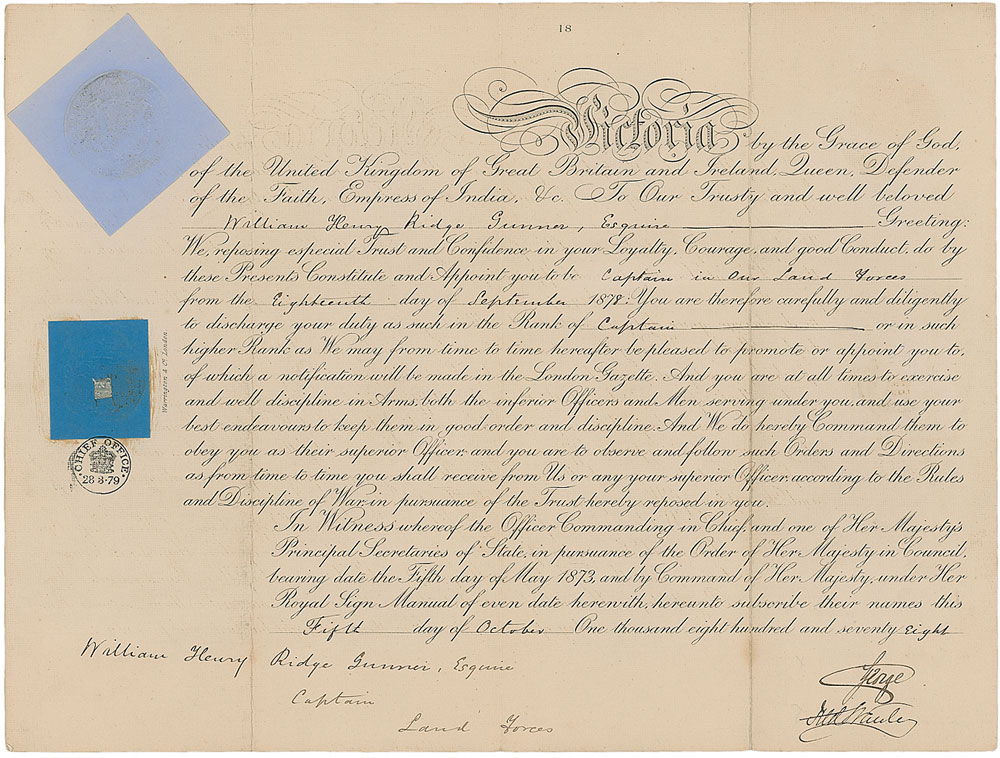 18
Victoria by the Grace of God,
of the United Kingdom of Great Britain and Ireland, Queen, Defender
of the Faith, Empress of India, &c. To Our Trusty and well beloved
William Henry Ridge Gunner, Esquire Greeting:
We, reposing especial Trust and Confidence in your Loyalty, Courage, and good Conduct, do by
these Presents Constitute and Appoint you to be Captain in Our Land Forces
from the Eighteenth day of September 1878. You are therefore carefully and diligently
to discharge your duty as such in the Rank of Captain or in such
higher Rank as We may from time to time hereafter be pleased to promote or appoint you to,
of which a notification will be made in the London Gazette. And you are at all times to exercise
and well discipline in Arms, both the inferior Officers and Men serving under you, and use your
best endeavours to keep them in good order and discipline. And We do hereby Command them to
obey you as their superior Officer, and you are to observe and follow such Orders and Directions
as from time to time you shall receive from Us or any your superior Officer, according to the Rules
and Discipline of War, in pursuance of the Trust hereby reposed in you.
In Witness whereof the Officer Commanding in Chief, and one of Her Majesty's
Principal Secretaries of State, in pursuance of the Order of Her Majesty in Council,
bearing date the Fifth day of May 1873, and by Command of Her Majesty, under Her
Royal Sign Manual of even date herewith, hereunto subscribe their names this
Fifth day of October One thousand eight hundred and seventy Eight
William Henry Ridge Gunner, Esquire
Captain
Land Forces
George
Fred Stanley
Warrington & Co London
CHIEF OFFICE
28 3 79